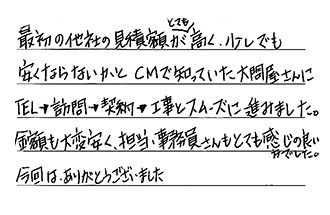 最初の他社の見積額がとても高く、少しでも
安くならないかと CMで知っていた大問屋さんに
TEL→訪問→契約→工事とスムーズに進みました。
金額も大変安く、担当、事務員さんもとても感じの良い
方でした。
今回は、ありがとうございました